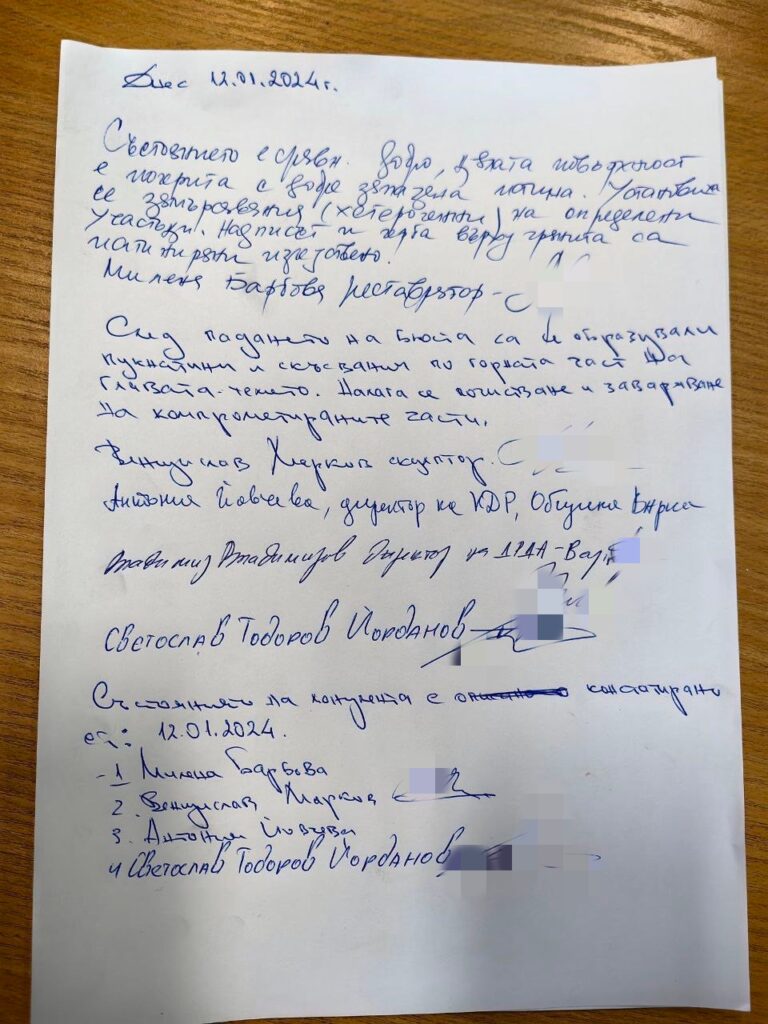 Днес 12.01.2024г.
Състоянието е сравн. добро, цялата повърхност
е покрита с добре запазена патина. Установиха
се замърсявания (хетерогенни) на определени
участъци. Надписът и герба върху гранита са
патинирани изкуствено.
Милена Барбова реставратор-
След падането на бюста са се образували
пукнатини и скъсвания по горната част на
главата-темето. Налага се почистване и заваряване
на компрометираните части.
Венцислав Марков скулптор.
Антония Йовчева, директор на КДР, Община Варна
Владимир Владимиров Директор на ДРДА-Вар
Светослав Тодоров Йорданов
Състоянието на монумента е констатирано
от: 12.01.2024.
-1 Милена Барбова
2. Венцислав Марков
3. Антония Йовчева
4 Светослав Тодоров Йорданов